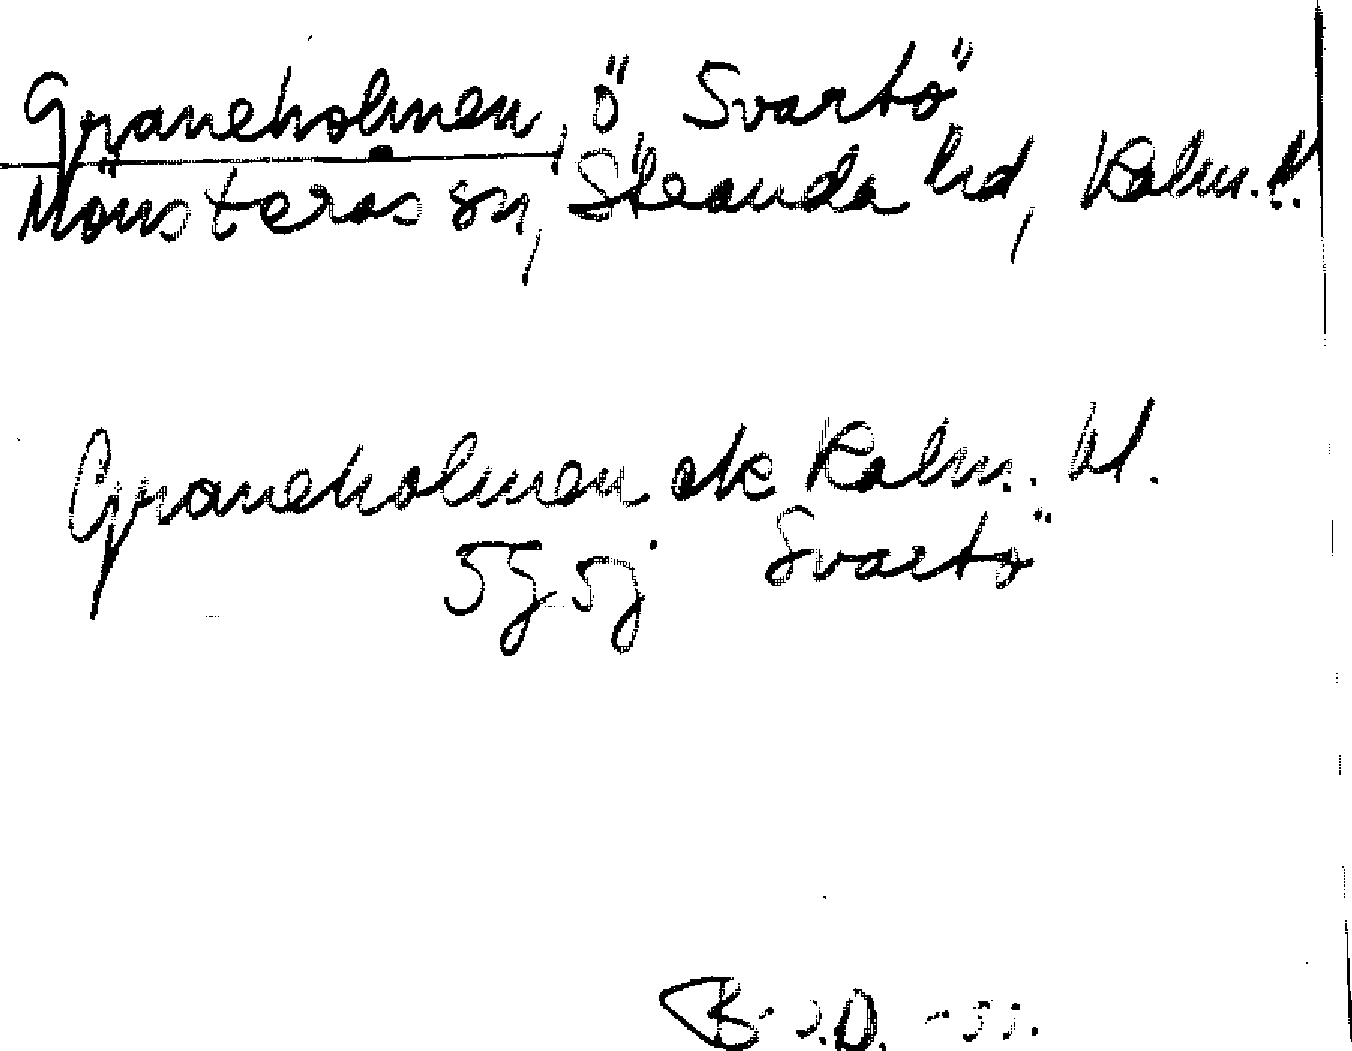 Graneholmen, ö, Svartö
Mönsterås sn, Stranda hd, Kalm. l.
Graneholmen ek Kalm. bl.
5g 5j Svartö